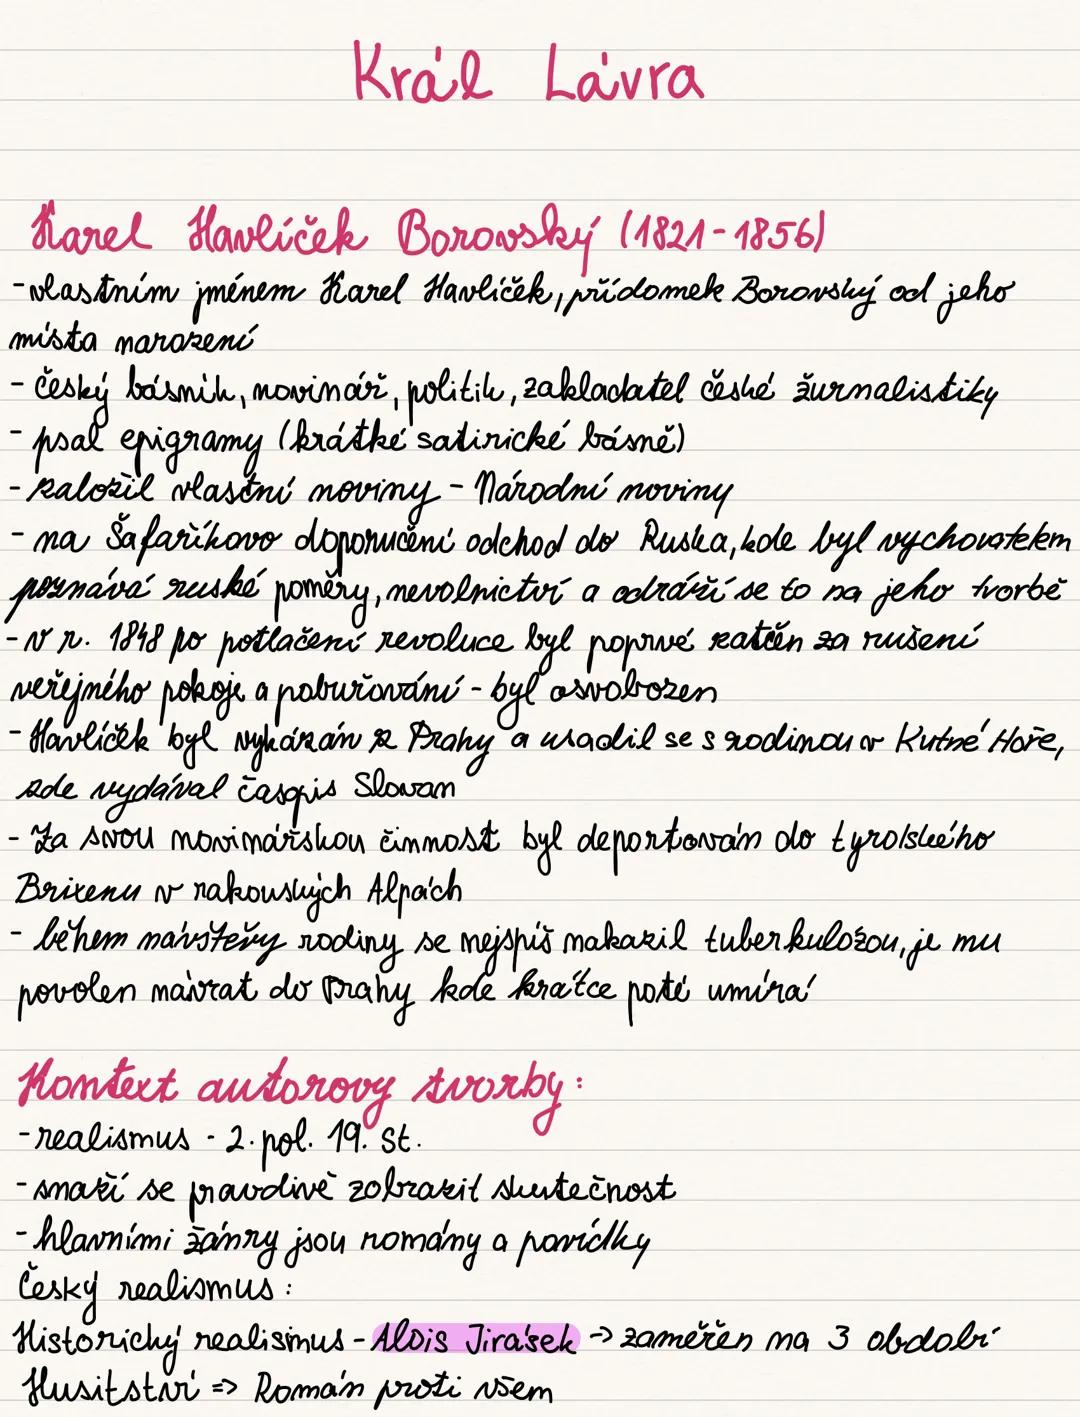 Král Lávra
Karel Havlíček Borovský (1821-1856)
- vlastním jménem Karel Havlíček, přídomek Borovský od jeho
místa narození
- český básník, novinář, politik, zakladatel české žurnalistiky
- psal epigramy (krátké satirické básně)
- založil vlastní noviny - Národní noviny
- na Šafaříkovo doporučení odchod do Ruska, kde byl vychovatelem
poznává ruské poměry, nevolnictví a odráží se to na jeho tvorbě
- v r. 1848 po potlačení revoluce byl poprvé zatčen za rušení
veřejného pokoje a pobuřování - byl osvobozen
- Havlíček byl vykázán z Prahy a usadil se s rodinou v Kutné Hoře,
zde vydával časopis Slovan
- Za svou novinářskou činnost byl deportován do tyrolského
Brixenu v rakouských Alpách
- během návštěvy rodiny se nejspíš nakazil tuberkulózou, je mu
povolen návrat do Prahy kde krátce poté umírá
Kontext autorovy tvorby:
- realismus - 2. pol. 19. st.
- snaží se pravdivě zobrazit skutečnost
- hlavními žánry jsou romány a povídky
Český realismus:
Historický realismus - Alois Jirásek -> zaměřen na 3 období
Husitství => Román proti všem